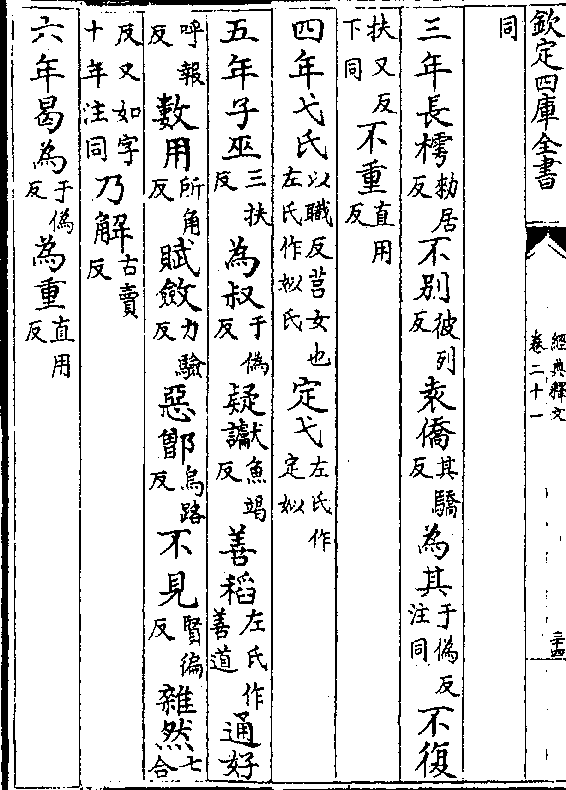 欽定四庫全書
經典釋文
卷二十一
二十四
同
三年長樗勑居反不别彼列反袁僑其驕反為其于偽反注同不復
扶又反下同不重直用反
四年弋氏以職反莒女也左氏作姒氏定弋左氏作定姒
五年子巫三扶反為叔于偽反疑讞魚竭反善稻左氏作善道通好
呼報反數用所角反賦斂力驗反惡鄫烏路反不見賢徧反雜然七合
反又如字十年注同乃解古賣反
六年曷為于偽反為重直用反